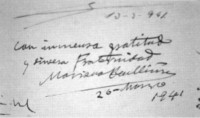 13-3-941
con inmensa gratitud
y sincera Fraternidad
Mariano Benlliure
20-Marzo
1941